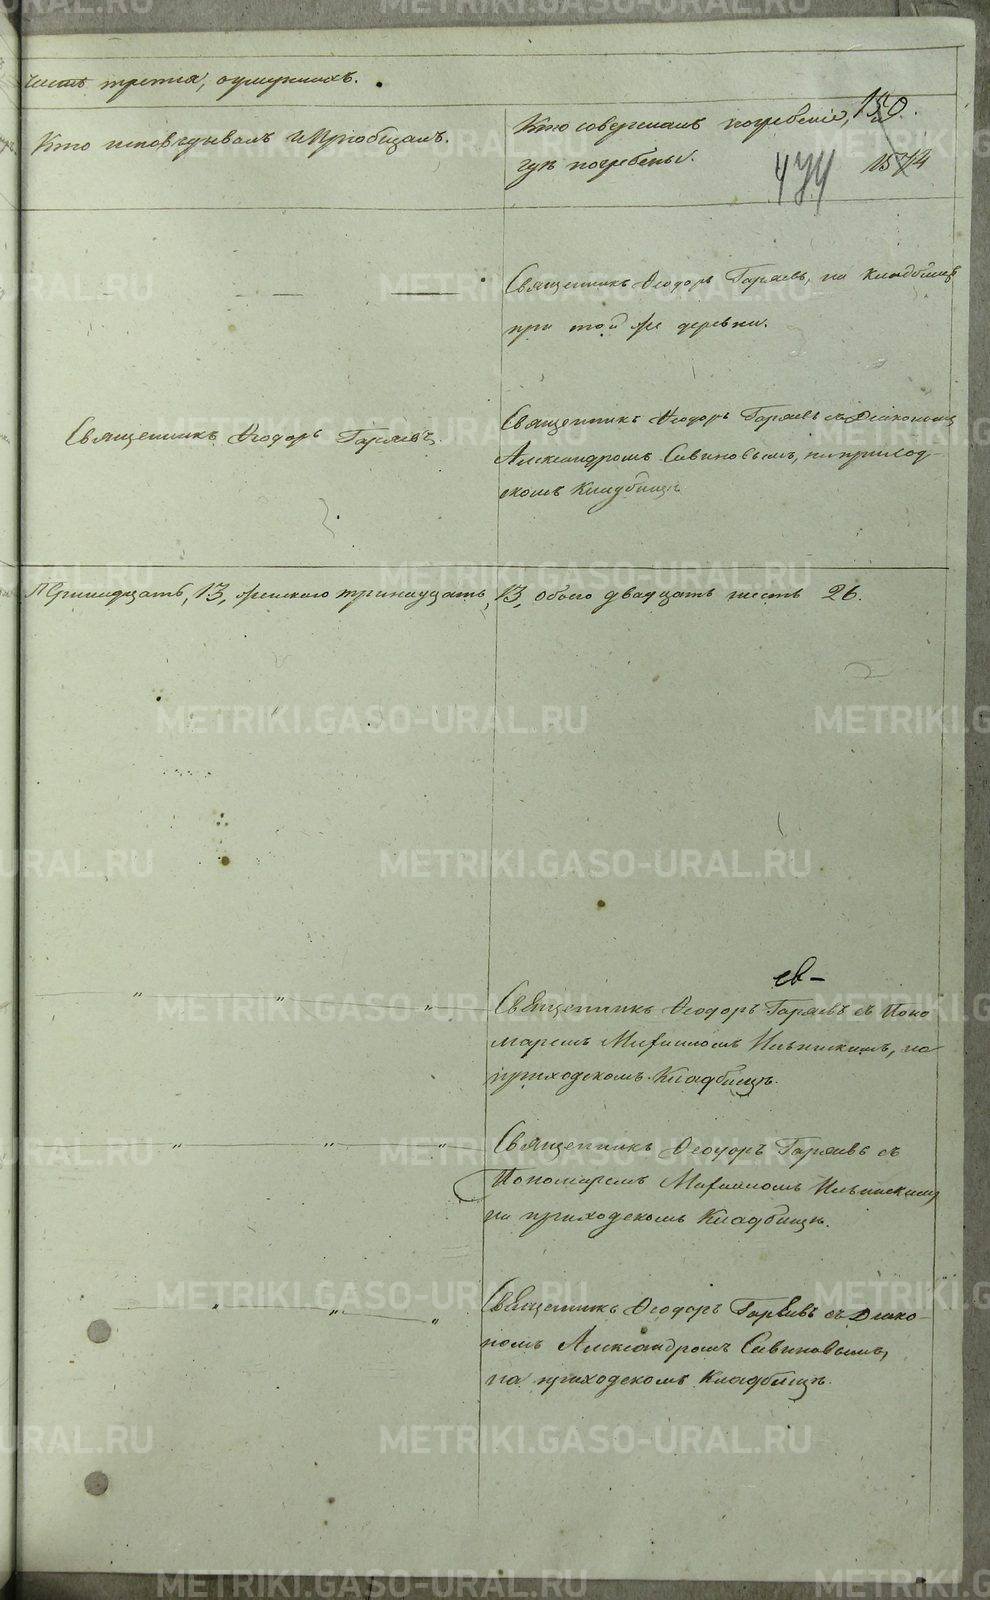 часть третія, о умершихъ.
Кто исповѣдывалъ и пріобщалъ.
Кто совершалъ погребеніе,
гдѣ погребены.
150.
474 1574
Священникъ Ѳеодоръ Гаряевъ, на Кладбищѣ
при той же деревни.
Священникъ Ѳеодоръ Гаряевъ.
Священникъ Ѳеодоръ Гаряевъ съ Діакономъ
Александромъ Савиновымъ, на приход-
скомъ Кладбищѣ
тринадцать, 13, женскаго тринадцать, 13, обоего двадцать шесть 26.
ев-
Священникъ Ѳеодоръ Гаряевъ съ Поно
маремъ Михаиломъ Ильинскимъ, на
приходскомъ Кладбищѣ.
Священникъ Ѳеодоръ Гаряевъ съ
Пономаремъ Михаиломъ Ильинскимъ
на приходскомъ Кладбищѣ.
Священникъ Ѳеодоръ Гаряевъ съ Діако-
номъ Александромъ Савиновымъ,
на приходскомъ Кладбищѣ.
METRIKI.GASO-URAL.RU